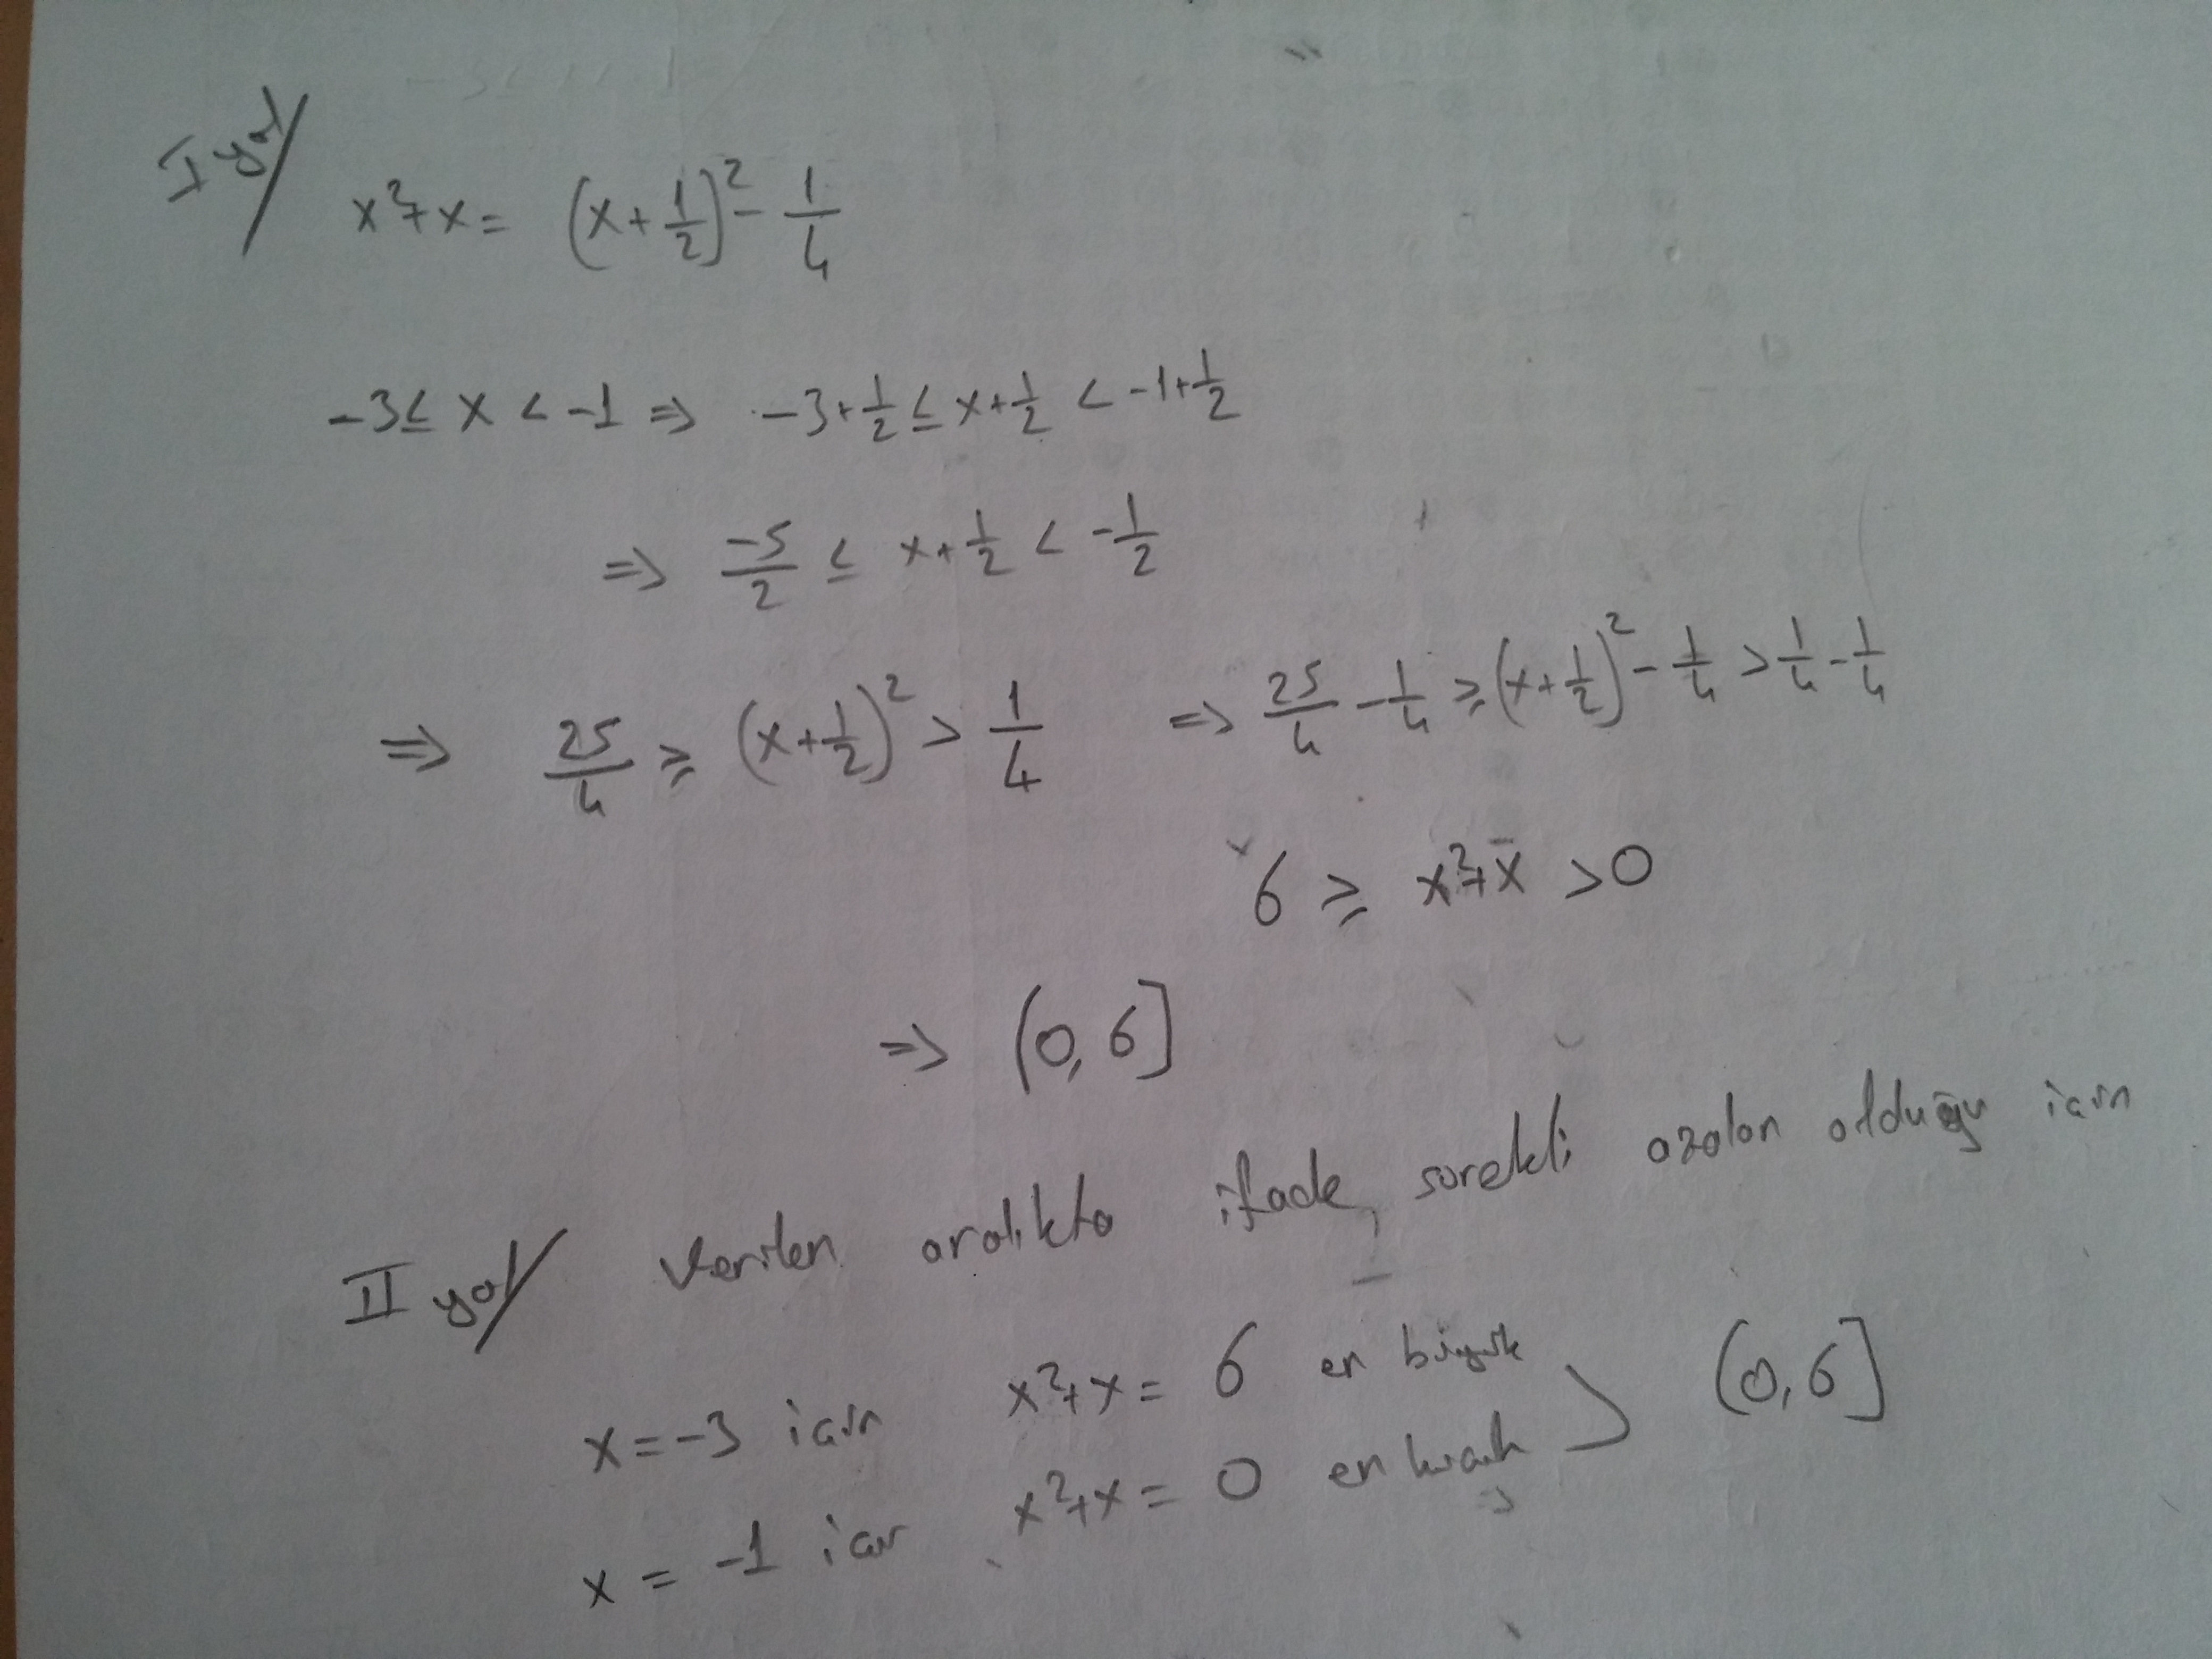 I yol/ x²+x = (x+1/2)² - 1/4
-3 ≤ x < -1 ⇒ -3+1/2 ≤ x+1/2 < -1+1/2
⇒ -5/2 ≤ x+1/2 < -1/2
⇒ 25/4 ≥ (x+1/2)² > 1/4 ⇒ 25/4 - 1/4 ≥ (x+1/2)² - 1/4 > 1/4 - 1/4
6 ≥ x²+x > 0
⇒ (0,6]
II yol/ Verilen aralıkta ifade, sürekli azalan olduğu için
x = -3 için x²+x = 6 en büyük
(0,6]
x = -1 için x²+x = 0 en küçük